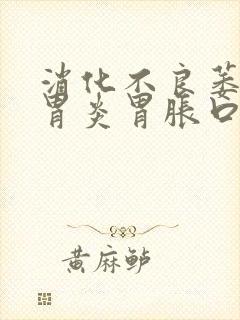 消化不良萎
胃炎胃胀口
黄麻鲈